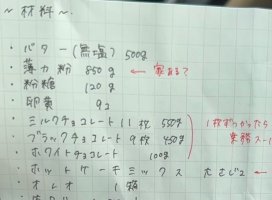 ~材料~
・バター(無塩) 500g
・薄力粉 850g ← 家ある?
・粉糖 120g
・卵黄 9コ
・ミルクチョコレート 11枚 550g
・ブラックチョコレート 9枚 450g
1枚ずつかったら
業務スー
・ホワイトチョコレート 100g
・ホットケーキミックス 大さじ2 ←
・オレオ 1箱